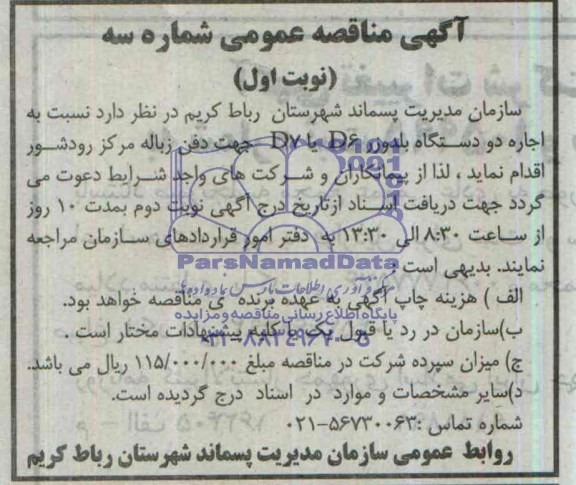 آگهی مناقصه عمومی شماره سه
(نوبت اول)
سازمان مدیریت پسماند شهرستان رباط کریم در نظر دارد نسبت به
اجاره دو دستگاه بلدوزر D۶ یا D۷ جهت دفن زباله مرکز رودشور
اقدام نماید ، لذا از پیمانکاران و شرکت های واجد شرایط دعوت می
گردد جهت دریافت اسناد ازتاریخ درج آگهی نوبت دوم بمدت ۱۰ روز
از ساعت ۸:۳۰ الی ۱۳:۳۰ به دفتر امور قراردادهای سازمان مراجعه
نمایند. بدیهی است :
ParsNamadData
الف ) هزینه چاپ آگهی به عهده برنده ی مناقصه خواهد بود.
پایگاه اطلاع رسانی مناقصه و مزایده
ب)سازمان در رد یا قبول یک یا کلیه پیشنهادات مختار است .
ج) میزان سپرده شرکت در مناقصه مبلغ ۱۱۵/۰۰۰/۰۰۰ ریال می باشد.
د)سایر مشخصات و موارد در اسناد درج گردیده است.
شماره تماس :۵۶۷۳۰۰۶۳-۰۲۱
روابط عمومی سازمان مدیریت پسماند شهرستان رباط کریم